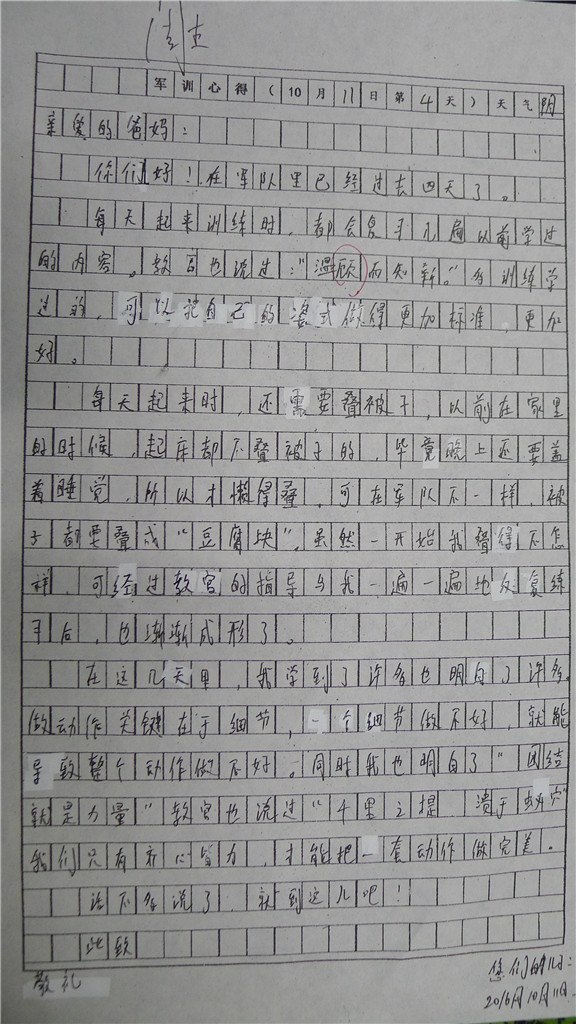 军训心得(10月11日第4天)天气阴
亲爱的爸妈:
你们好!在军队里已经过去四天了。
每天起来训练时,都会复习几遍以前学过
的内容。教官也说过:"温顾而知新。"多训练学
过的,可以把自己的姿式做得更加标准,更加
好。
每天起来时,还需要叠被子,以前在家里
的时候,起床都不叠被子的,毕竟晚上还要盖
着睡觉,所以才懒得叠,可在军队不一样,被
子都要叠成"豆腐块"。虽然一开始我叠得不怎
样,可经过教官的指导与我一遍一遍地反复练
习后,也渐渐成形了。
在这几天里,我学到了许多也明白了许多。
做动作关键在于细节,一个细节做不好,就能
导致整个动作做不好。同时我也明白了"团结
就是力量"教官也说过"千里之提 溃于蚁穴"
我们只有齐心协力,才能把一套动作做完美。
话不多说了,就到这儿吧!
此致
敬礼
您们的儿子:
2016月10月11日.